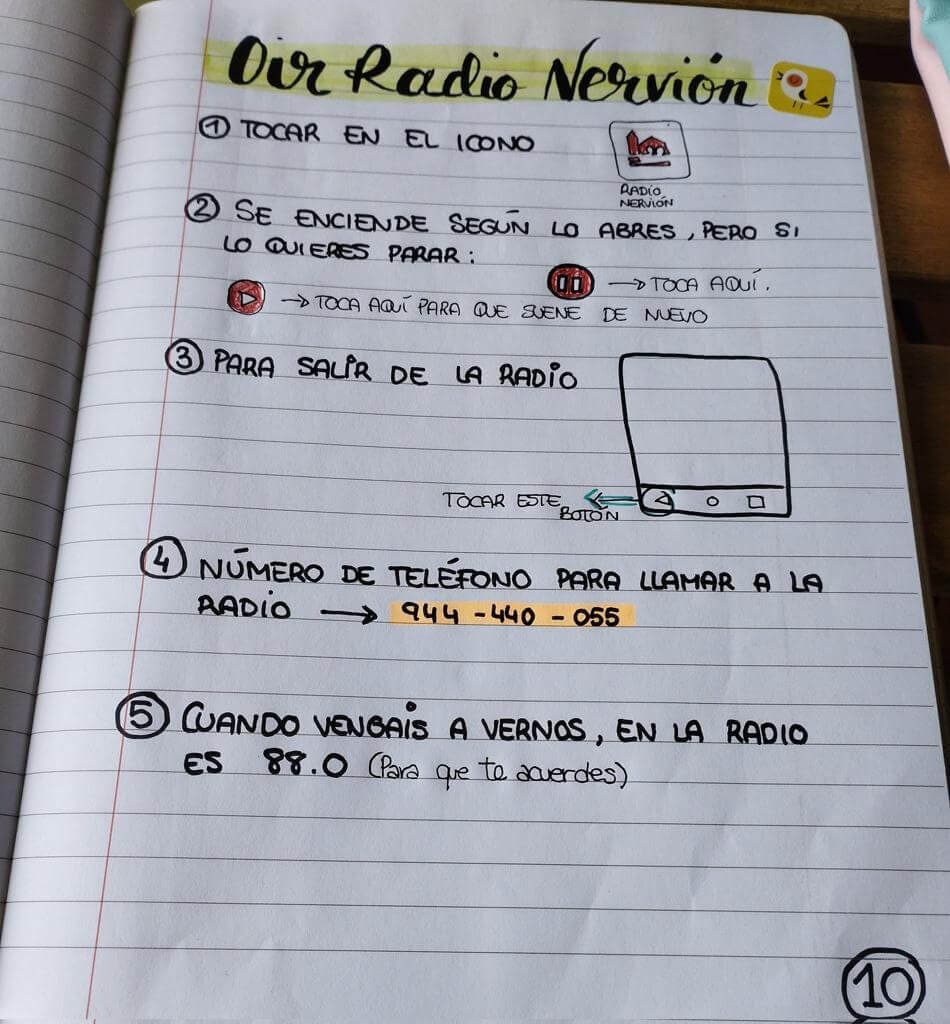 Oir Radio Nervión
① TOCAR EN EL ICONO
RADIO NERVIÓN
② SE ENCIENDE SEGÚN LO ABRES, PERO SI
LO QUIERES PARAR:
→ TOCA AQUÍ.
→ TOCA AQUÍ PARA QUE SUENE DE NUEVO
③ PARA SALIR DE LA RADIO
TOCAR ESTE
BOTÓN
④ NÚMERO DE TELÉFONO PARA LLAMAR A LA
RADIO → 944-440-055
⑤ CUANDO VENGAIS A VERNOS, EN LA RADIO
ES 88.0 (Para que te acuerdes)
10